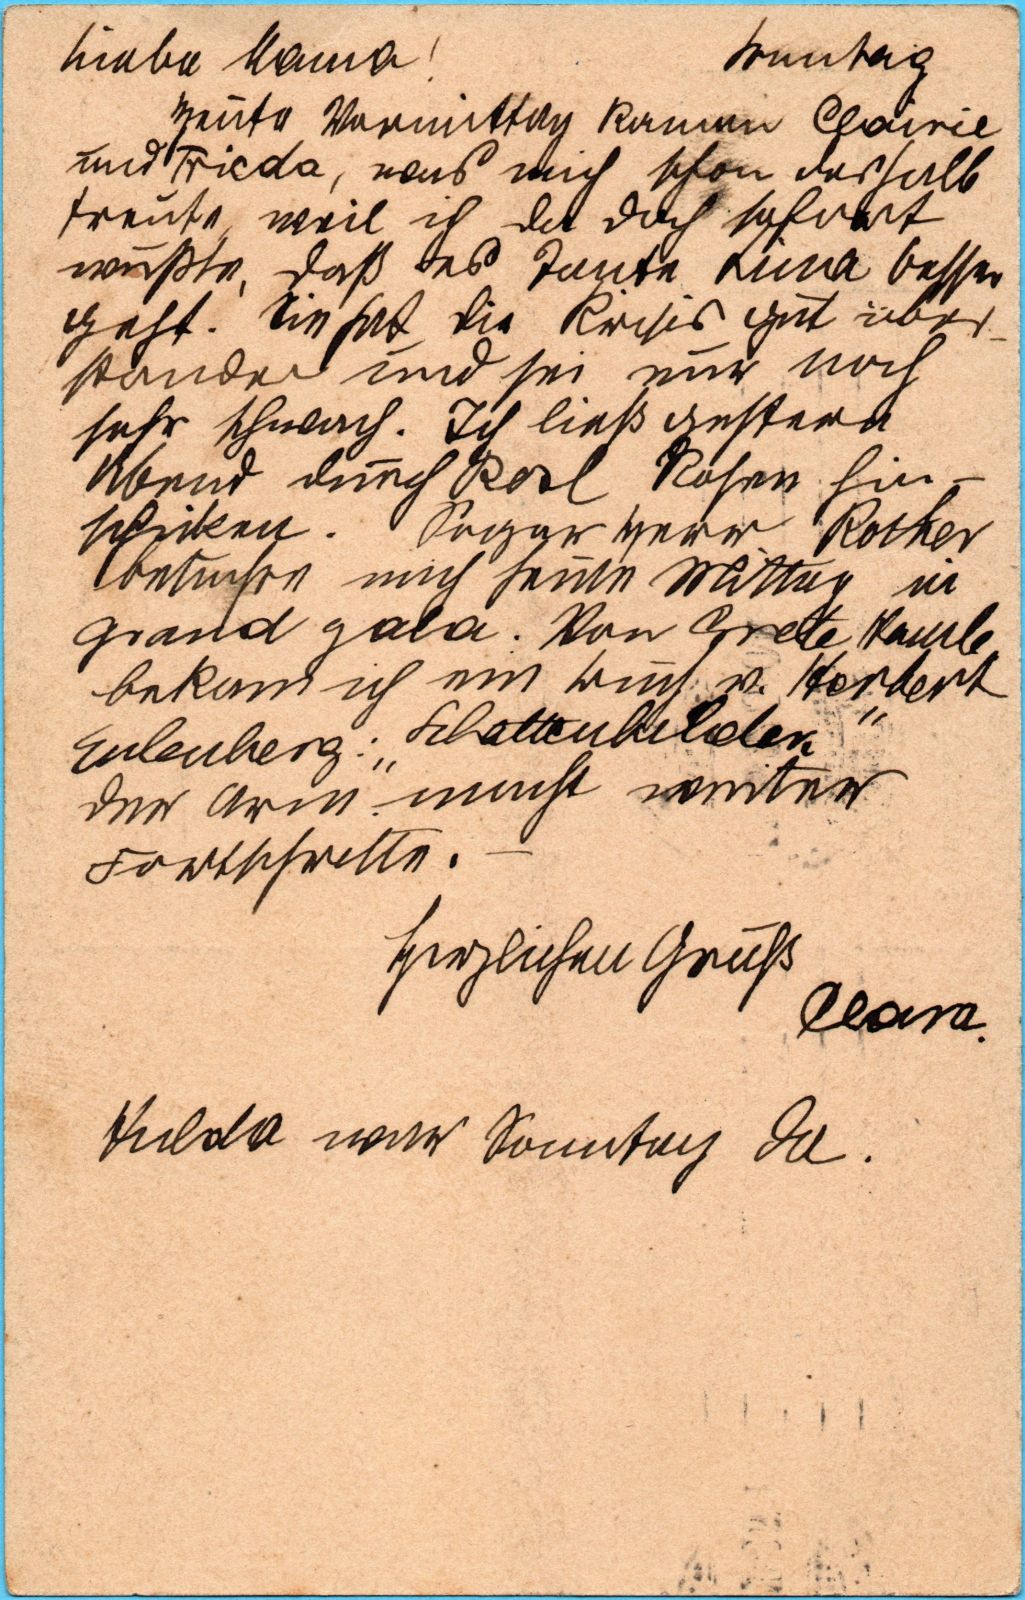 Liebe Mama! Sonntag
Heute Vormittag kamen Clairie
und Frieda, was mich schon deshalb
freute, weil ich da doch sofort
wußte, daß es Tante Lina besser
geht. Sie hat die Krisis gut über-
standen und sei nur noch
sehr schwach. Ich ließ gestern
Abend durch Rosl Rosen hin-
schicken. Sogar Herr Rother
besuchte mich heute Mittag in
grand gala. Von Grete
bekam ich ein Buch v. Herbert
Eulenberg: „Schattenbilder"
der Arm macht weiter
Fortschritte. —
Herzlichen Gruß
Clara.
Hulda war Sonntag da.